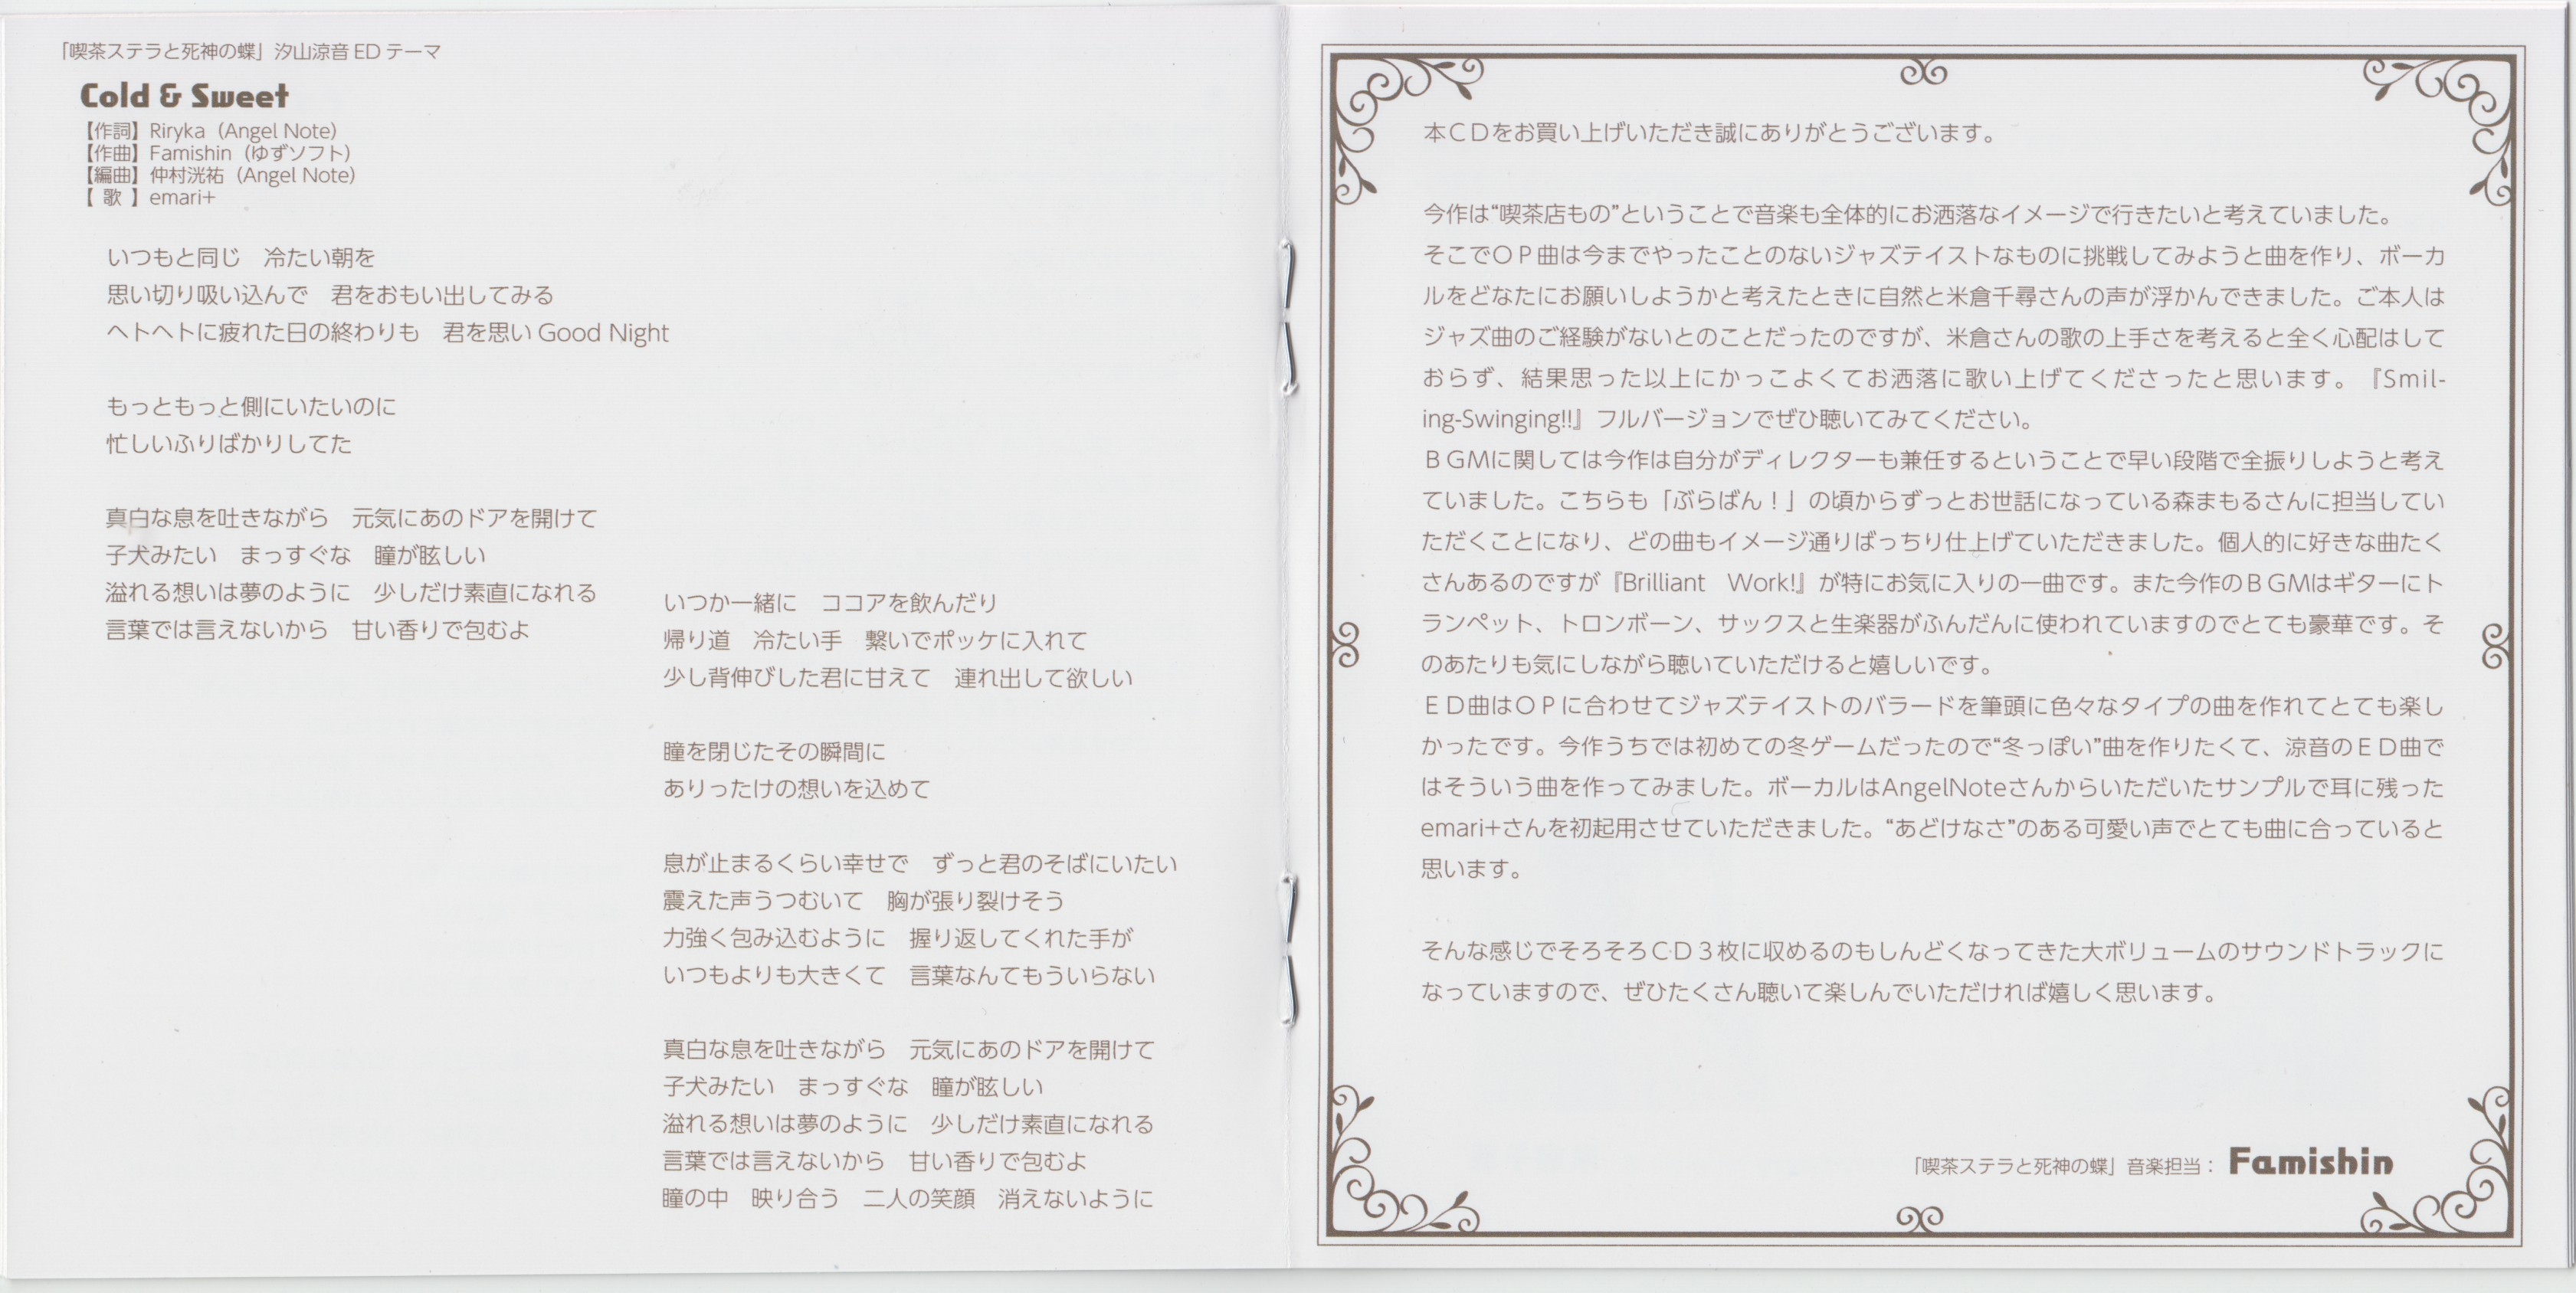 「喫茶ステラと死神の蝶」汐山涼音 ED テーマ
Cold & Sweet
【作詞】Riryka（Angel Note）
【作曲】Famishin（ゆずソフト）
【編曲】仲村洸祐（Angel Note）
【 歌 】emari+
いつもと同じ　冷たい朝を
思い切り吸い込んで　君をおもい出してみる
ヘトヘトに疲れた日の終わりも　君を思い Good Night
もっともっと側にいたいのに
忙しいふりばかりしてた
真白な息を吐きながら　元気にあのドアを開けて
子犬みたい　まっすぐな　瞳が眩しい
溢れる想いは夢のように　少しだけ素直になれる
言葉では言えないから　甘い香りで包むよ
いつか一緒に　ココアを飲んだり
帰り道　冷たい手　繋いでポッケに入れて
少し背伸びした君に甘えて　連れ出して欲しい
瞳を閉じたその瞬間に
ありったけの想いを込めて
息が止まるくらい幸せで　ずっと君のそばにいたい
震えた声うつむいて　胸が張り裂けそう
力強く包み込むように　握り返してくれた手が
いつもよりも大きくて　言葉なんてもういらない
真白な息を吐きながら　元気にあのドアを開けて
子犬みたい　まっすぐな　瞳が眩しい
溢れる想いは夢のように　少しだけ素直になれる
言葉では言えないから　甘い香りで包むよ
瞳の中　映り合う　二人の笑顔　消えないように
本ＣＤをお買い上げいただき誠にありがとうございます。
今作は“喫茶店もの”ということで音楽も全体的にお洒落なイメージで行きたいと考えていました。
そこでＯＰ曲は今までやったことのないジャズテイストなものに挑戦してみようと曲を作り、ボーカ
ルをどなたにお願いしようかと考えたときに自然と米倉千尋さんの声が浮かんできました。ご本人は
ジャズ曲のご経験がないとのことだったのですが、米倉さんの歌の上手さを考えると全く心配はして
おらず、結果思った以上にかっこよくてお洒落に歌い上げてくださったと思います。『Smil-
ing-Swinging!!』フルバージョンでぜひ聴いてみてください。
ＢＧＭに関しては今作は自分がディレクターも兼任するということで早い段階で全振りしようと考え
ていました。こちらも「ぶらばん！」の頃からずっとお世話になっている森まもるさんに担当してい
ただくことになり、どの曲もイメージ通りばっちり仕上げていただきました。個人的に好きな曲たく
さんあるのですが『Brilliant　Work!』が特にお気に入りの一曲です。また今作のＢＧＭはギターにト
ランペット、トロンボーン、サックスと生楽器がふんだんに使われていますのでとても豪華です。そ
のあたりも気にしながら聴いていただけると嬉しいです。
ＥＤ曲はＯＰに合わせてジャズテイストのバラードを筆頭に色々なタイプの曲を作れてとても楽し
かったです。今作うちでは初めての冬ゲームだったので“冬っぽい”曲を作りたくて、涼音のＥＤ曲で
はそういう曲を作ってみました。ボーカルはAngelNoteさんからいただいたサンプルで耳に残った
emari+さんを初起用させていただきました。“あどけなさ”のある可愛い声でとても曲に合っていると
思います。
そんな感じでそろそろＣＤ３枚に収めるのもしんどくなってきた大ボリュームのサウンドトラックに
なっていますので、ぜひたくさん聴いて楽しんでいただければ嬉しく思います。
「喫茶ステラと死神の蝶」音楽担当： Famishin